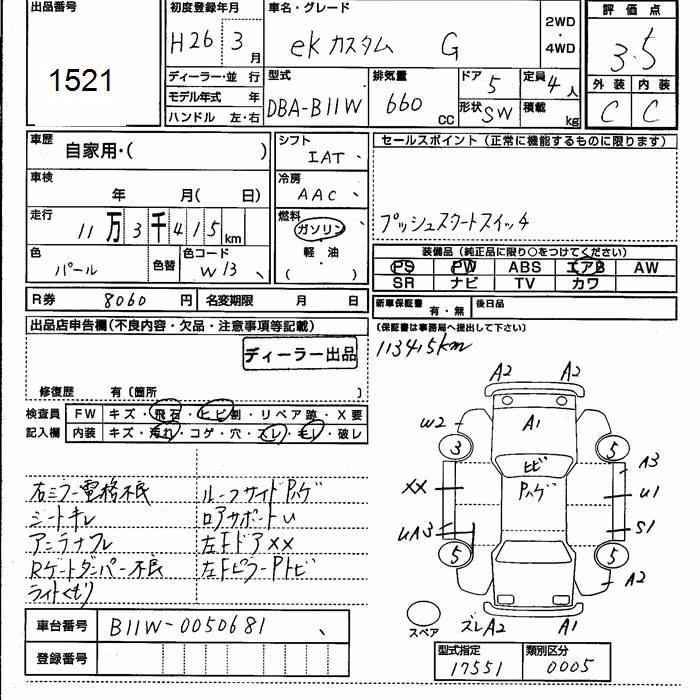 出品番号
1521
初度登録年月
H26 3 月
ディーラー・並 行
モデル年式 年
ハンドル 左・右
車名・グレード
ekカスタム G
2WD
・
4WD
型式
DBA-B11W
排気量
660 cc
ドア 5
形状 SW
定員 4 人
積載 kg
評 価 点
3.5
外 装 内 装
C C
車歴
自家用・( )
車検
年 月( 日)
走行
11 万 3 千 4 1 5 km
色
パール
色替
色コード
W13
シフト
IAT
冷房
AAC
燃料
ガソリン
軽・油
( )
セールスポイント（正常に機能するものに限ります）
プッシュスタートスイッチ
装備品（純正品に限り○をつけてください）
PS PW ABS エアB AW
SR ナビ TV カワ
R券 8060 円 名変期限 月 日
新車保証書 有・無 後日品
（保証書は事務局へ提出して下さい）
113415km
出品店申告欄（不良内容・欠品・注意事項等記載）
ディーラー出品
修復歴 有〔箇所 〕
検査員
記入欄
FW キズ・飛石・ヒビ割・リペア跡・X要
内装 キズ・汚れ・コゲ・穴・スレ・モレ・破レ
右ミラー電格不良
シートキレ
アンテナフレ
Rゲートダンパー不良
ライトくもり
ルーフサイドPハゲ
ロアサポートU
左FドアXX
左FピラーPトビ
A2 A2
W2 A1
3 5
ヒビ
A3
XX Pハゲ U1
UA3 S1
5 5
A2
スペア
ズレA2 A1
車台番号 B11W-0050681
登録番号
型式指定 類別区分
17551 0005